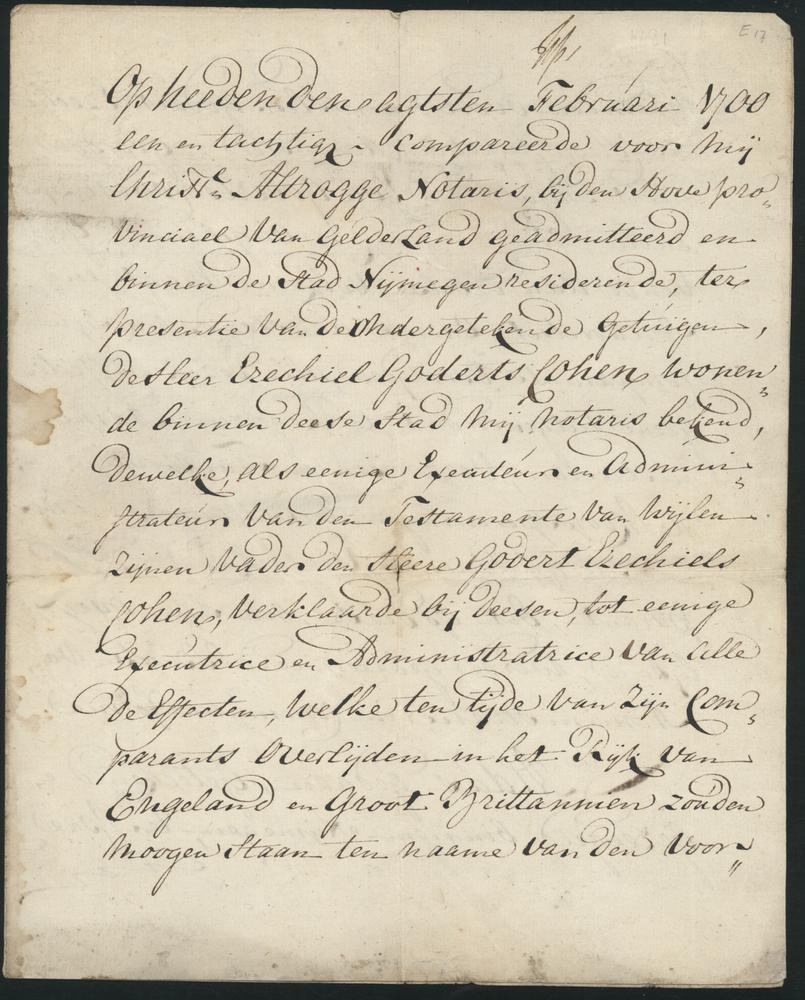 E 17
Op heeden den agtsten Februari 1700
een en tachtig compareerde voor mij
Christn Altrogge Notaris, bij den Hove pro„
vinciael van Gelderland geadmitteerd en
binnen de Stad Nijmegen resideren de, ter
presentie van de ondergetekende getuigen,
de Heer Ezechiel Goderts Cohen, wonen„
de binnen deese Stad mij notaris bekend,
dewelke, als eenige Executeur en Admini„
strateur van den Testamente van wijlen
zijnen vader den Heere Godert Ezechiels
Cohen, verklaarde bij deesen, tot eenige
Executrice en Administratrice van alle
de Effecten, welke ten tijde van zijn Com„
parants overlijden in het Rijk van
Engeland en Groot Brittannien zouden
moogen staan ten naame van den voor„